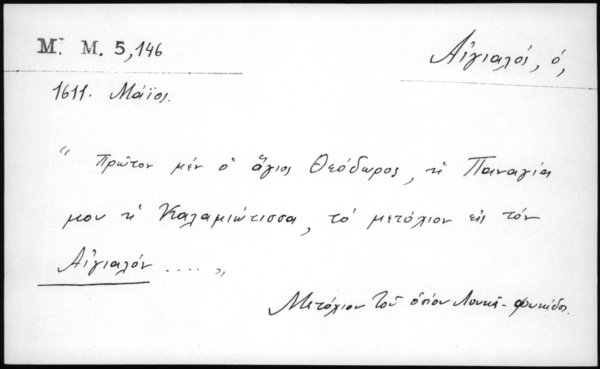 Μ. Μ. 5,146
Αἰγιαλός, ὁ,
1611. Μάϊος.
“ Πρῶτον μέν ὁ ἅγιος Θεόδωρος, ἡ Παναγία
μου ἡ Καλαμιώτισσα, τό μετόχιον εἰς τόν
Αἰγιαλόν .... „
Μετόχιον τοῦ ὁσίου Λουκᾶ - Φωκίδος.